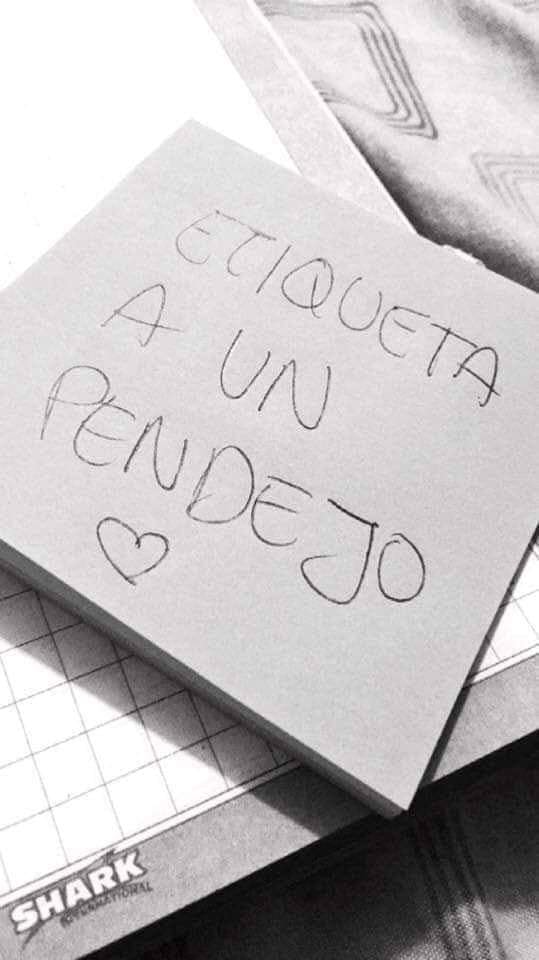 ETIQUETA
A UN
PENDEJO
SHARK
INTERNATIONAL